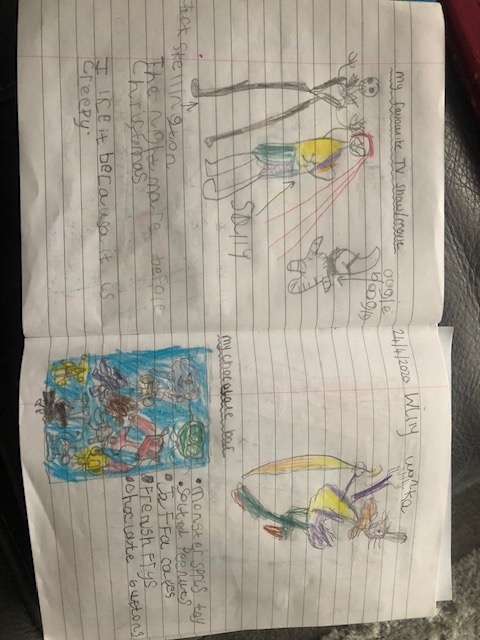 my favourite TV show/movie
oogie
boogie
Sally
jack skellington
The night mare before
Christmas
I like it because it is
creepy
24/4/2020 Willy wonka
my chocolate bar
•monster spris toy
•Solted peanuts
•Jaffa cakes
•Frensh frys
•chocolate buttons